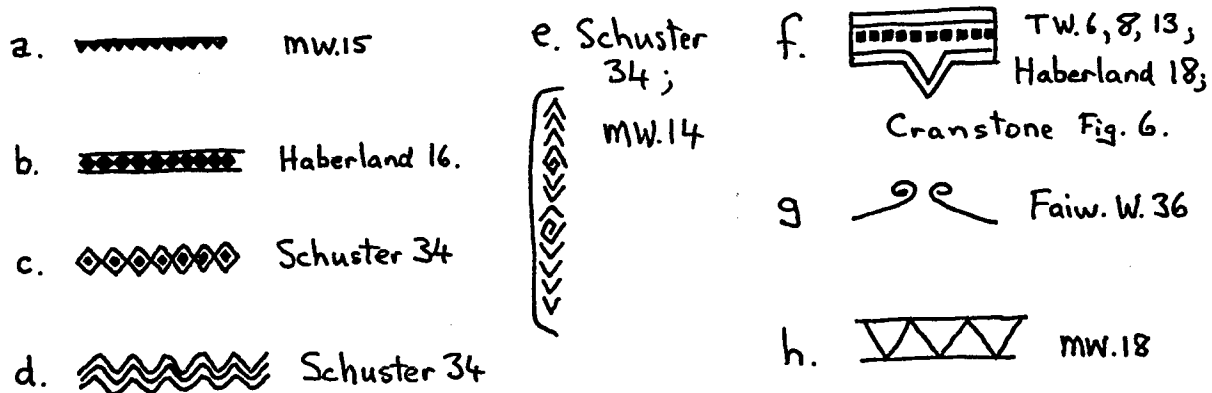 a. MW.15
b. Haberland 16.
c. Schuster 34
d. Schuster 34
e. Schuster
34;
MW.14
f. TW.6, 8, 13;
Haberland 18;
Cranstone Fig. 6.
g Faiw. W. 36
h. MW.18